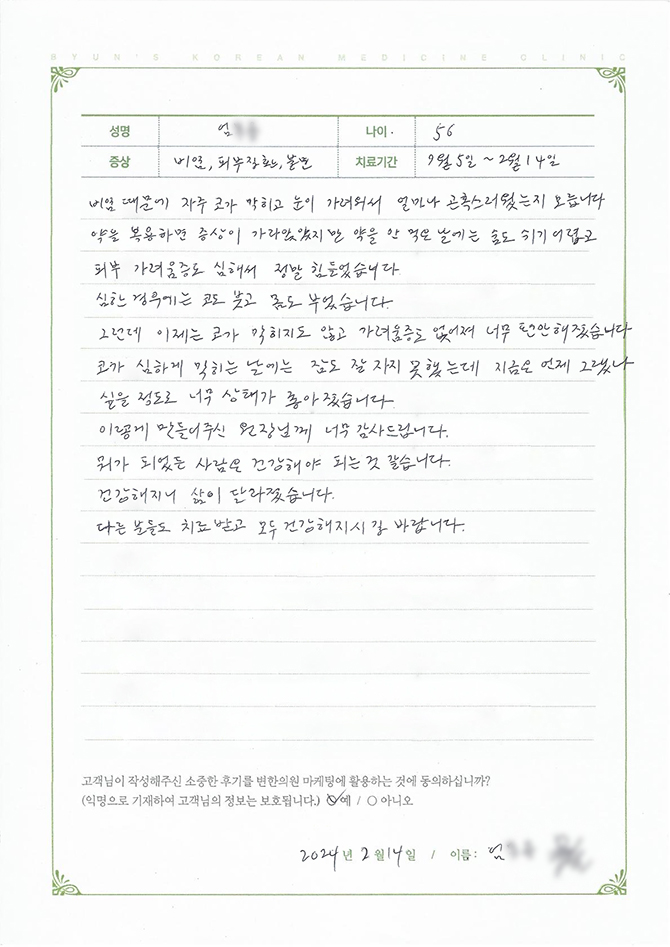 BYUN'S KOREAN MEDICINE CLINIC
성명 엄 나이 · 56
증상 비염, 피부질환, 불면 치료기간 9월 5일 ~ 2월 14일
비염 때문에 자주 코가 막히고 눈이 가려워서 얼마나 곤혹스러웠는지 모릅니다
약을 복용하면 증상이 가라앉았지만 약을 안 먹은 날에는 숨도 쉬기 어렵고
피부 가려움증도 심해서 정말 힘들었습니다.
심한 경우에는 코도 붓고 몸도 부었습니다.
그런데 이제는 코가 막히지도 않고 가려움증도 없어져 너무 편안해졌습니다
코가 심하게 막히는 날에는 잠도 잘 자지 못했는데 지금은 언제 그랬나
싶을 정도로 너무 상태가 좋아졌습니다.
이렇게 만들어주신 원장님께 너무 감사드립니다.
뭐가 되었든 사람은 건강해야 되는 것 같습니다.
건강해지니 삶이 달라졌습니다.
다른 분들도 치료 받고 모두 건강해지시길 바랍니다.
고객님이 작성해주신 소중한 후기를 변한의원 마케팅에 활용하는 것에 동의하십니까?
(익명으로 기재하여 고객님의 정보는 보호됩니다.) 예 / 아니오
2024년 2월 14일 / 이름 : 엄